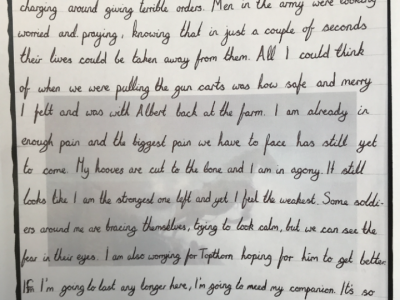 charging around giving terrible orders. Men in the army were looking
worried and praying, knowing that in just a couple of seconds
their lives could be taken away from them. All I could think
of when we were pulling the gun carts was how safe and merry
I felt and was with Albert back at the farm. I am already in
enough pain and the biggest pain we have to face has still yet
to come. My hooves are cut to the bone and I am in agony. It still
looks like I am the strongest one left and yet I feel the weakest. Some soldi-
ers around me are bracing themselves, trying to look calm, but we can see the
fear in their eyes. I am also worrying for Topthorn hoping for him to get better.
If I'm going to last any longer here, I'm going to need my companion. It's so